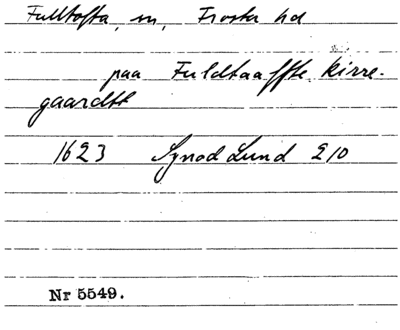 Fulltofta, sn, Frosta hd
paa Fuldtaaffte kirre-
gaardtt
1623 Synod Lund 210
Nr 5549.